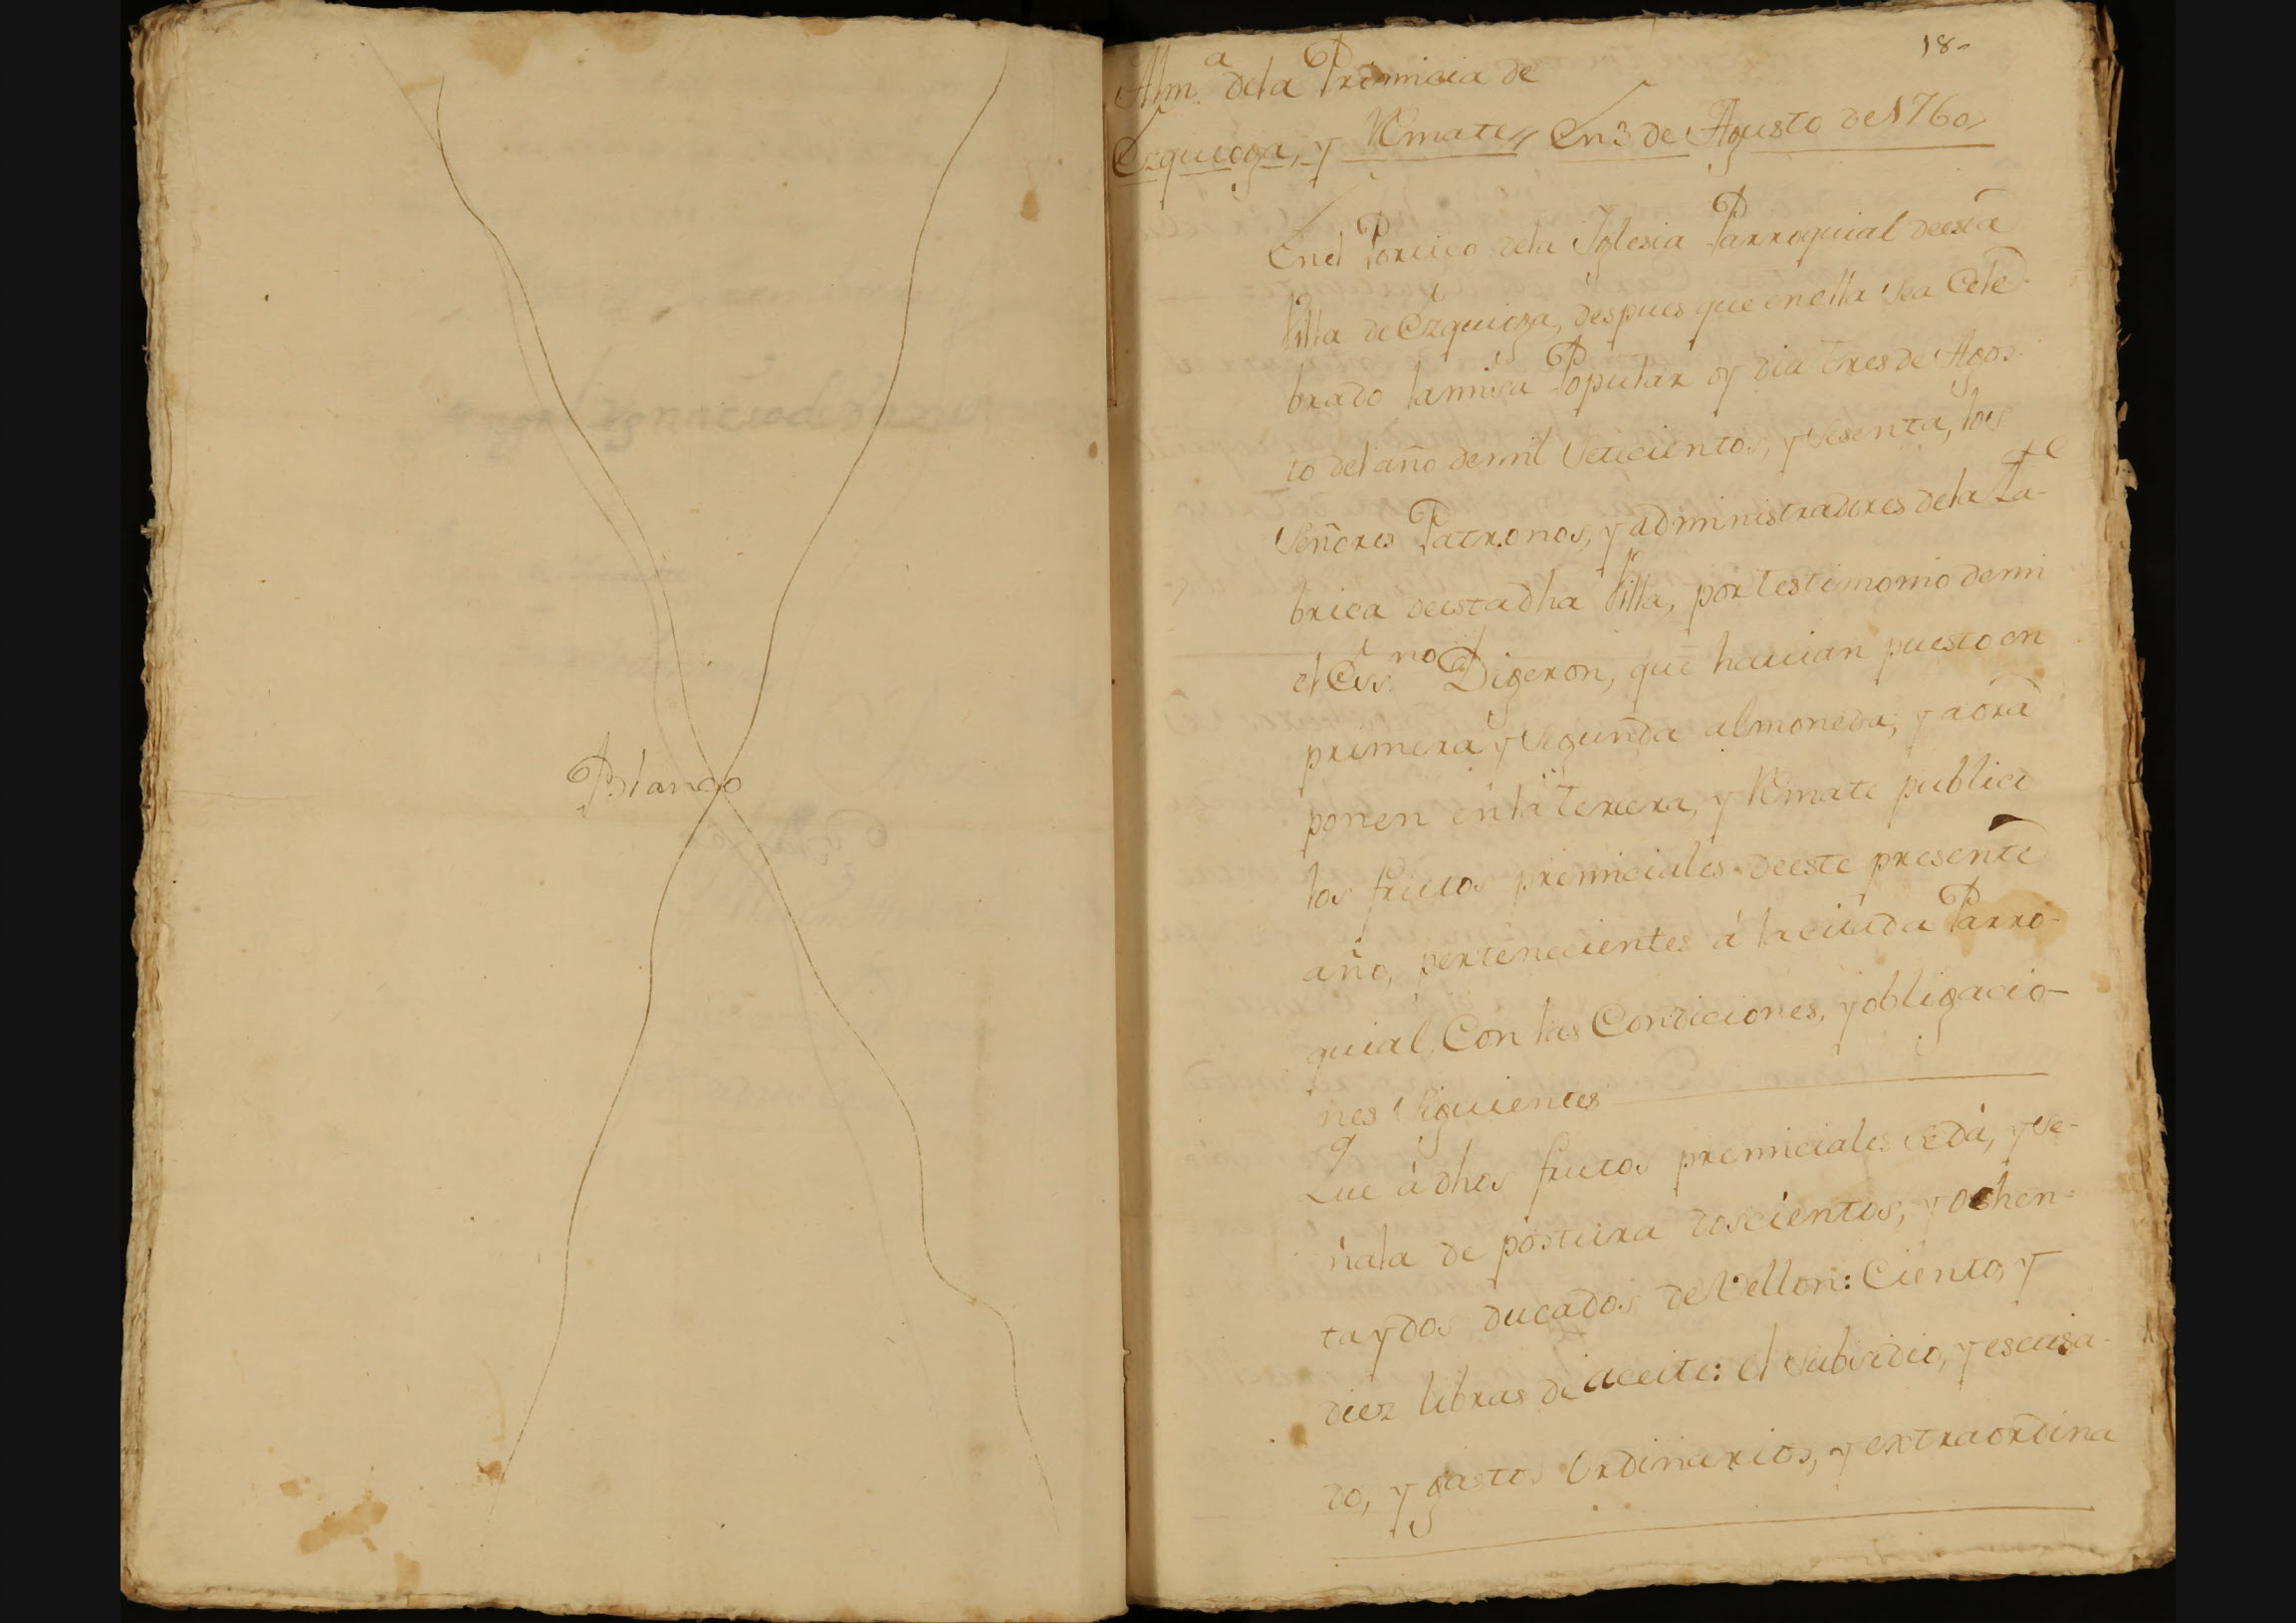 Blanco
18-
Alm.ª dela Primicia de
Ezquioga, y Remate, En 3 de Agusto de 1760,
Enel Portico dela Yglesia Parroquial deesta
Villa de Ezquioga, despues que enella sea Cele-
brado lamisa Popular oy dia tres de Agos-
to del año demil Setecientos, y sesenta, los
Señores Patronos, y administradores dela Fa-
brica deesta dha Villa, por testimonio demi
el Ess.no Digeron, que hauian puesto en
primera, y segunda almoneda, y aora
ponen enla tercera, y Remate publico
los frutos primiciales deeste presente
año, pertenecientes á la citada Parro-
quial, Con las Condiciones, y obligacio-
nes siguientes
Que á dhos frutos primiciales se dá, y se-
ñala de postura doscientos, y ochen-
ta y dos ducados de Vellon: Ciento, y
diez libras de aceite: el subsidio, y escusa-
do, y gastos Ordinarios, y extraordina